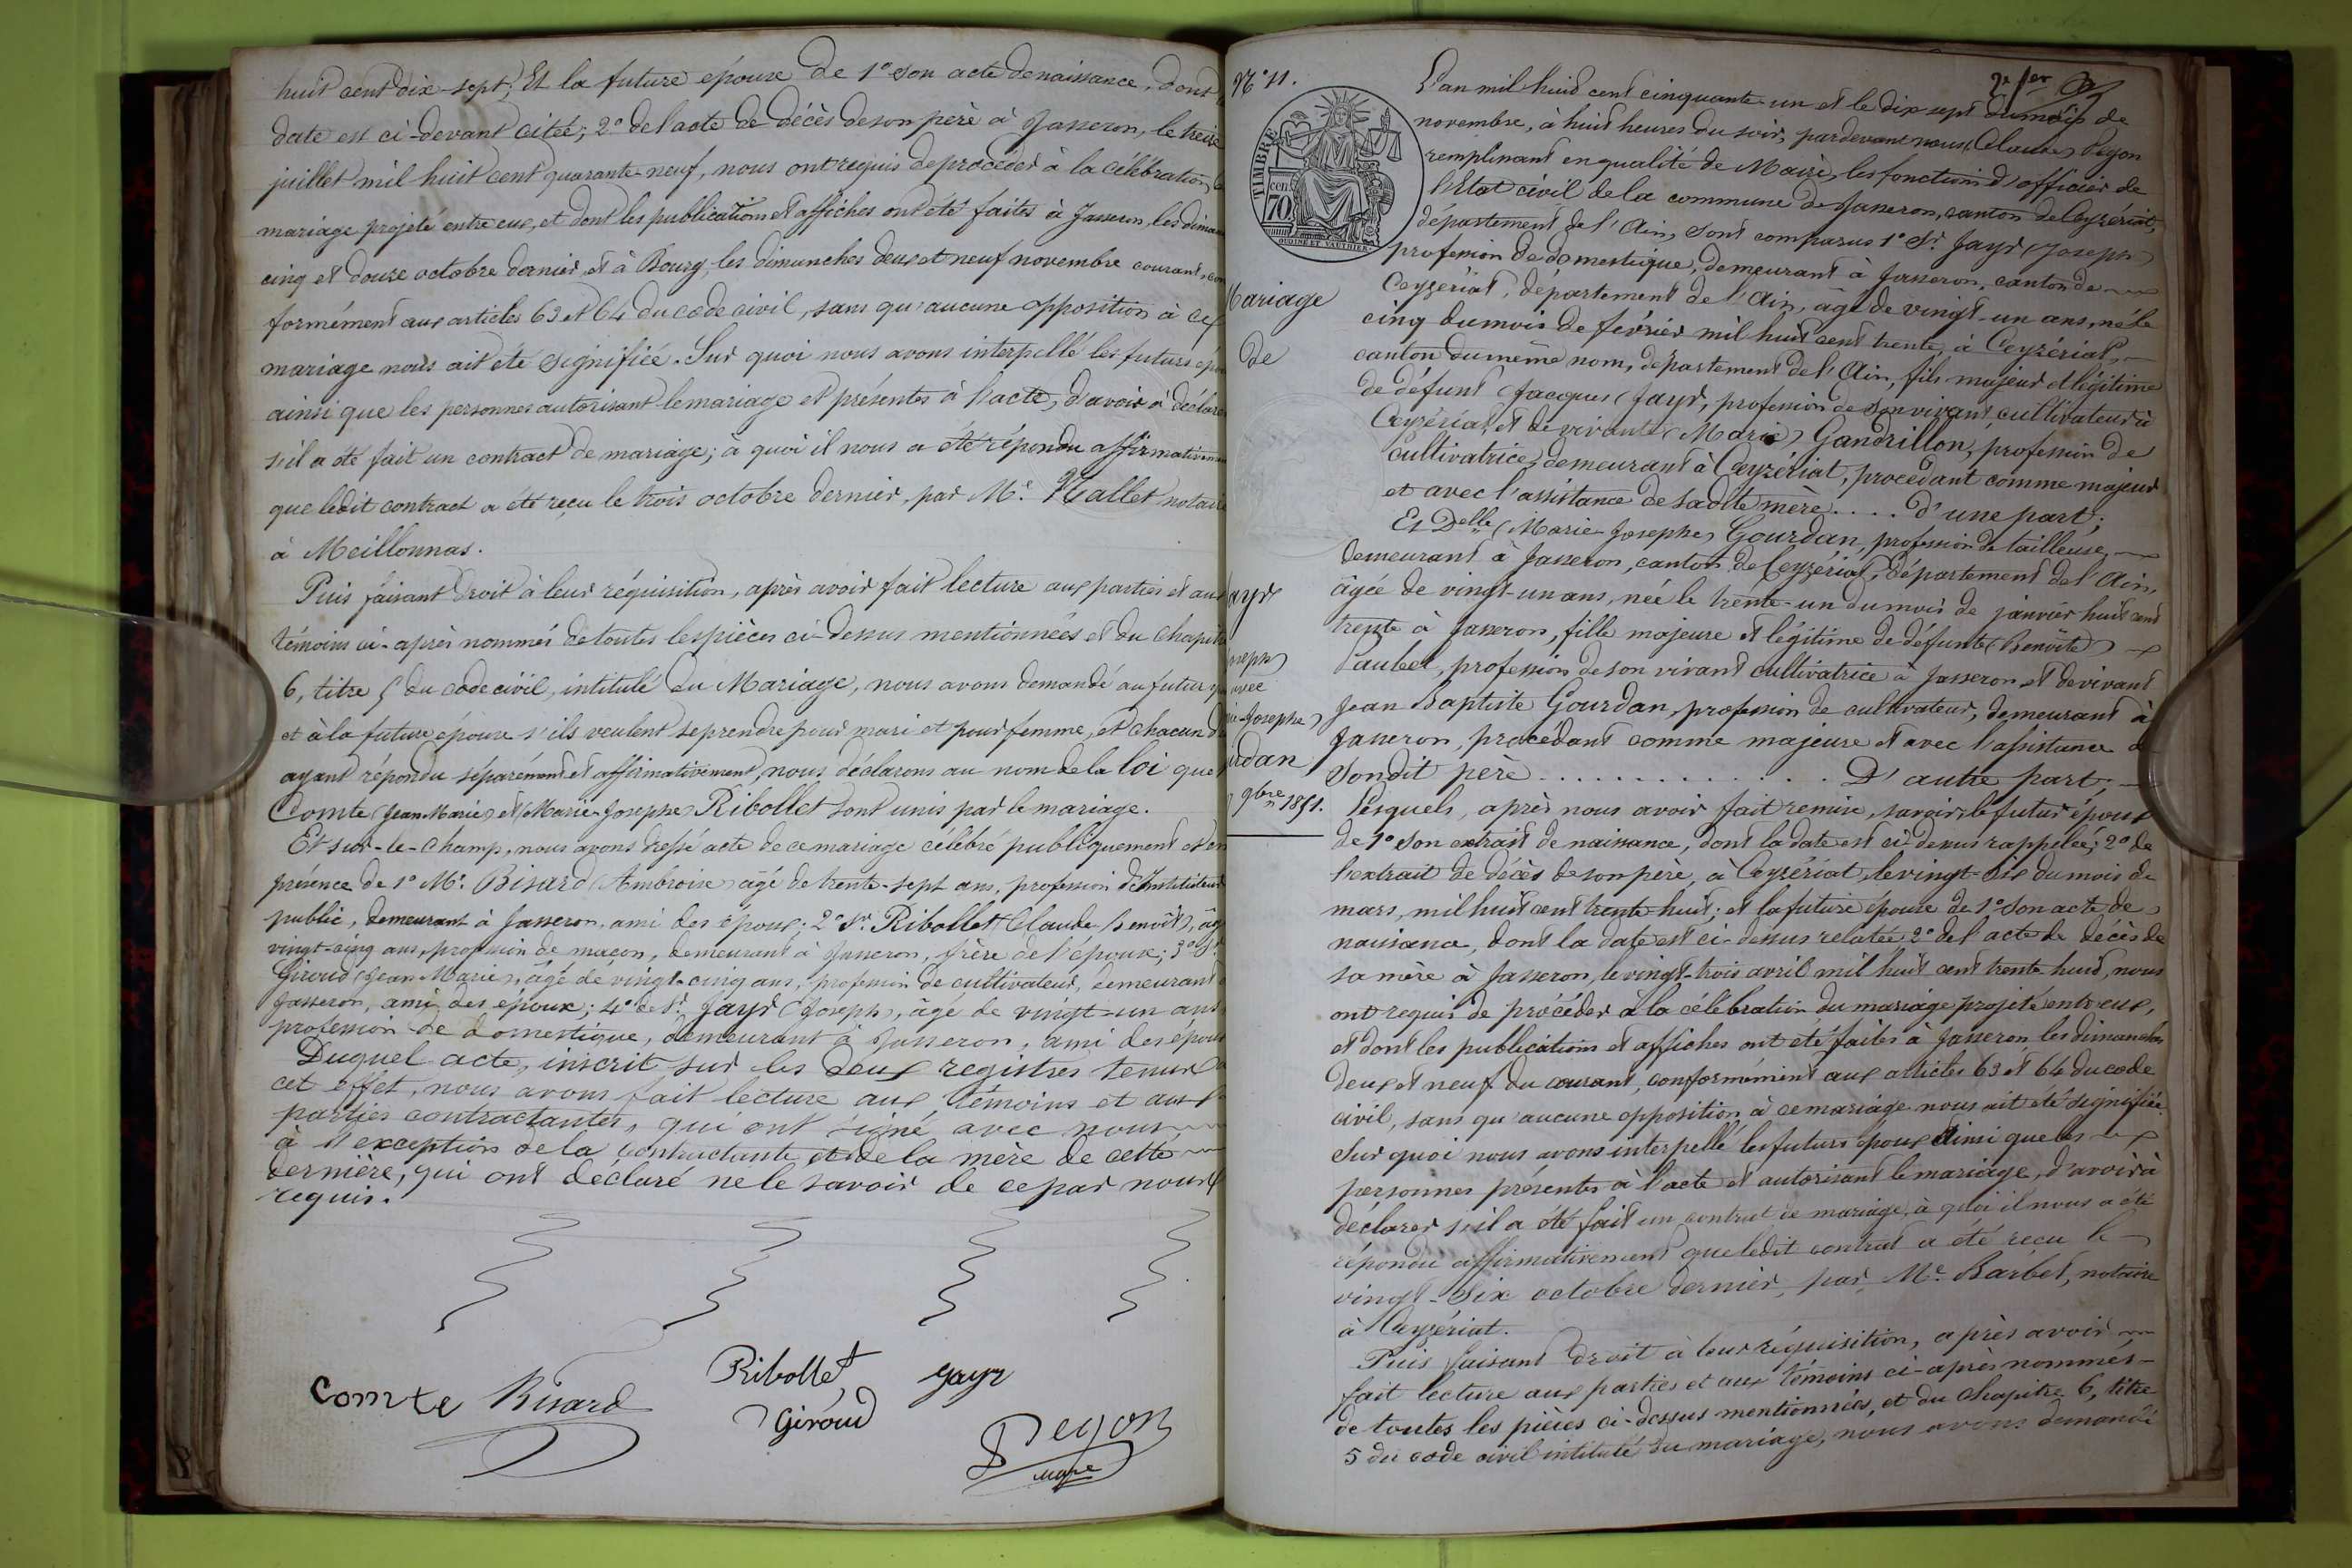 huit cent dix-sept; Et la future épouse de 1° son acte de naissance, dont
date est ci-devant citée; 2° de l'acte de décès de son père à Jasseron, le treize
juillet mil huit cent quarante-neuf, nous ont requis de procéder à la célébration
mariage projeté entre eux, et dont les publications et affiches ont été faites à Jasseron, les diman
cinq et douze octobre dernier, et à Bourg, les dimanches deux et neuf novembre courant, con
formément aux articles 63 et 64 du code civil, sans qu'aucune opposition à ce
mariage nous ait été signifiée. Sur quoi nous avons interpellé les futurs épo
ainsi que les personnes autorisant le mariage et présentes à l'acte, d'avoir à déclarer
s'il a été fait un contract de mariage; à quoi il nous a été répondu affirmativemen
que ledit contract a été reçu le trois octobre dernier, par Me. Nallet notaire
à Meillonnas.
Puis faisant droit à leur réquisition, après avoir fait lecture aux parties et aux
témoins ci-après nommés de toutes les pièces ci-dessus mentionnées et du chapitre
6, titre 5 du code civil, intitulé du Mariage, nous avons demandé au futur
et à la future épouse s'ils veulent se prendre pour mari et pour femme, et chacun d'e
ayant répondu séparément et affirmativement, nous déclarons au nom de la loi que
Comte (Jean-Marie) et (Marie-Josephe) Ribollet sont unis par le mariage.
Et sur-le-champ, nous avons dressé acte de ce mariage célébré publiquement et en
présence de 1° Mr. Bisard (Ambroise) âgé de trente-sept ans, profession d'Instituteur
public, demeurant à Jasseron, ami des époux; 2° Sr. Ribollet (Claude-Benoît), âgé
vingt-cinq ans, profession de maçon, demeurant à Jasseron, frère de l'épouse; 3° Sr.
Giroud (Jean-Marie), âgé de vingt-cinq ans, profession de cultivateur, demeurant à
Jasseron, ami des époux; 4° de Sr. Jayr (Joseph), âgé de vingt-un ans
profession de domestique, demeurant à Jasseron, ami des époux
Duquel acte, inscrit sur les deux registres tenus à
cet effet, nous avons fait lecture aux témoins et aux
parties contractantes, qui ont signé avec nous,
à l'exception de la contractante et de la mère de cette
dernière, qui ont déclaré ne le savoir de ce par nous
requis.
Comte Bisard Ribollet Jayr
Giroud
Peyon
maire
N° 11.
TIMBRE
cen
70
OUDINÉ ET VAUTHIER
Mariage
de
Jayr
Joseph
avec
ie-Josephe
rdan
9bre 1851.
L'an mil huit cent cinquante-un et le dix sept du mois de
novembre, à huit heures du soir, pardevant nous (Claude) Peyon
remplissant en qualité de Maire, les fonctions d'officier de
l'Etat civil de la commune de Jasseron, canton de Ceyzériat,
département de l'Ain, sont comparus 1° Sr. Jayr (Joseph)
profession de domestique, demeurant à Jasseron, canton de
Ceyzériat, département de l'Ain, âgé de vingt-un ans, né le
cinq du mois de février mil huit cent trente, à Ceyzériat,
canton du même nom, département de l'Ain, fils majeur et légitime
de défunt (Jacques) Jayr, profession de son vivant, cultivateur à
Ceyzériat, et de vivante (Marie) Gandrillon, profession de
cultivatrice, demeurant à Ceyzériat, procédant comme majeur
et avec l'assistance de sadite mère .... d'une part;
Et Delle (Marie-Josephe) Gourdan, profession de tailleuse,
demeurant à Jasseron, canton de Ceyzériat, département de l'Ain,
âgée de vingt-un ans, née le trente-un du mois de janvier huit cent
trente à Jasseron, fille majeure et légitime de défunte (Benoîte)
Paubel, profession de son vivant cultivatrice à Jasseron et de vivant
Jean Baptiste Gourdan, profession de cultivateur, demeurant à
Jasseron, procédant comme majeure et avec l'assistance de
sondit père ............ D'autre part;
lesquels, après nous avoir fait remise, savoir: le futur époux
de 1° son extrait de naissance, dont la date est ci-dessus rappelée; 2° de
l'extrait de décès de son père, à Ceyzériat, le vingt-six du mois de
mars, mil huit cent trente huit; et la future épouse de 1° son acte de
naissance, dont la date est ci-dessus relatée, 2° de l'acte de décès de
sa mère à Jasseron, le vingt-trois avril mil huit cent trente huit, nous
ont requis de procéder à la célébration du mariage projeté entre eux,
et dont les publications et affiches ont été faites à Jasseron, les dimanches
deux et neuf du courant, conformément aux articles 63 et 64 du code
civil, sans qu'aucune opposition à ce mariage nous ait été signifiée.
Sur quoi nous avons interpellé les futurs époux ainsi que les
personnes présentes à l'acte et autorisant le mariage, d'avoir à
déclarer s'il a été fait un contrat de mariage, à quoi il nous a été
répondu affirmativement que ledit contrat a été reçu le
vingt-six octobre dernier, par Me. Barbet, notaire
à Ceyzériat.
Puis faisant droit à leur réquisition, après avoir
fait lecture aux parties et aux témoins ci-après nommés
de toutes les pièces ci-dessus mentionnées, et du chapitre 6, titre
5 du code civil intitulé du mariage, nous avons demandé